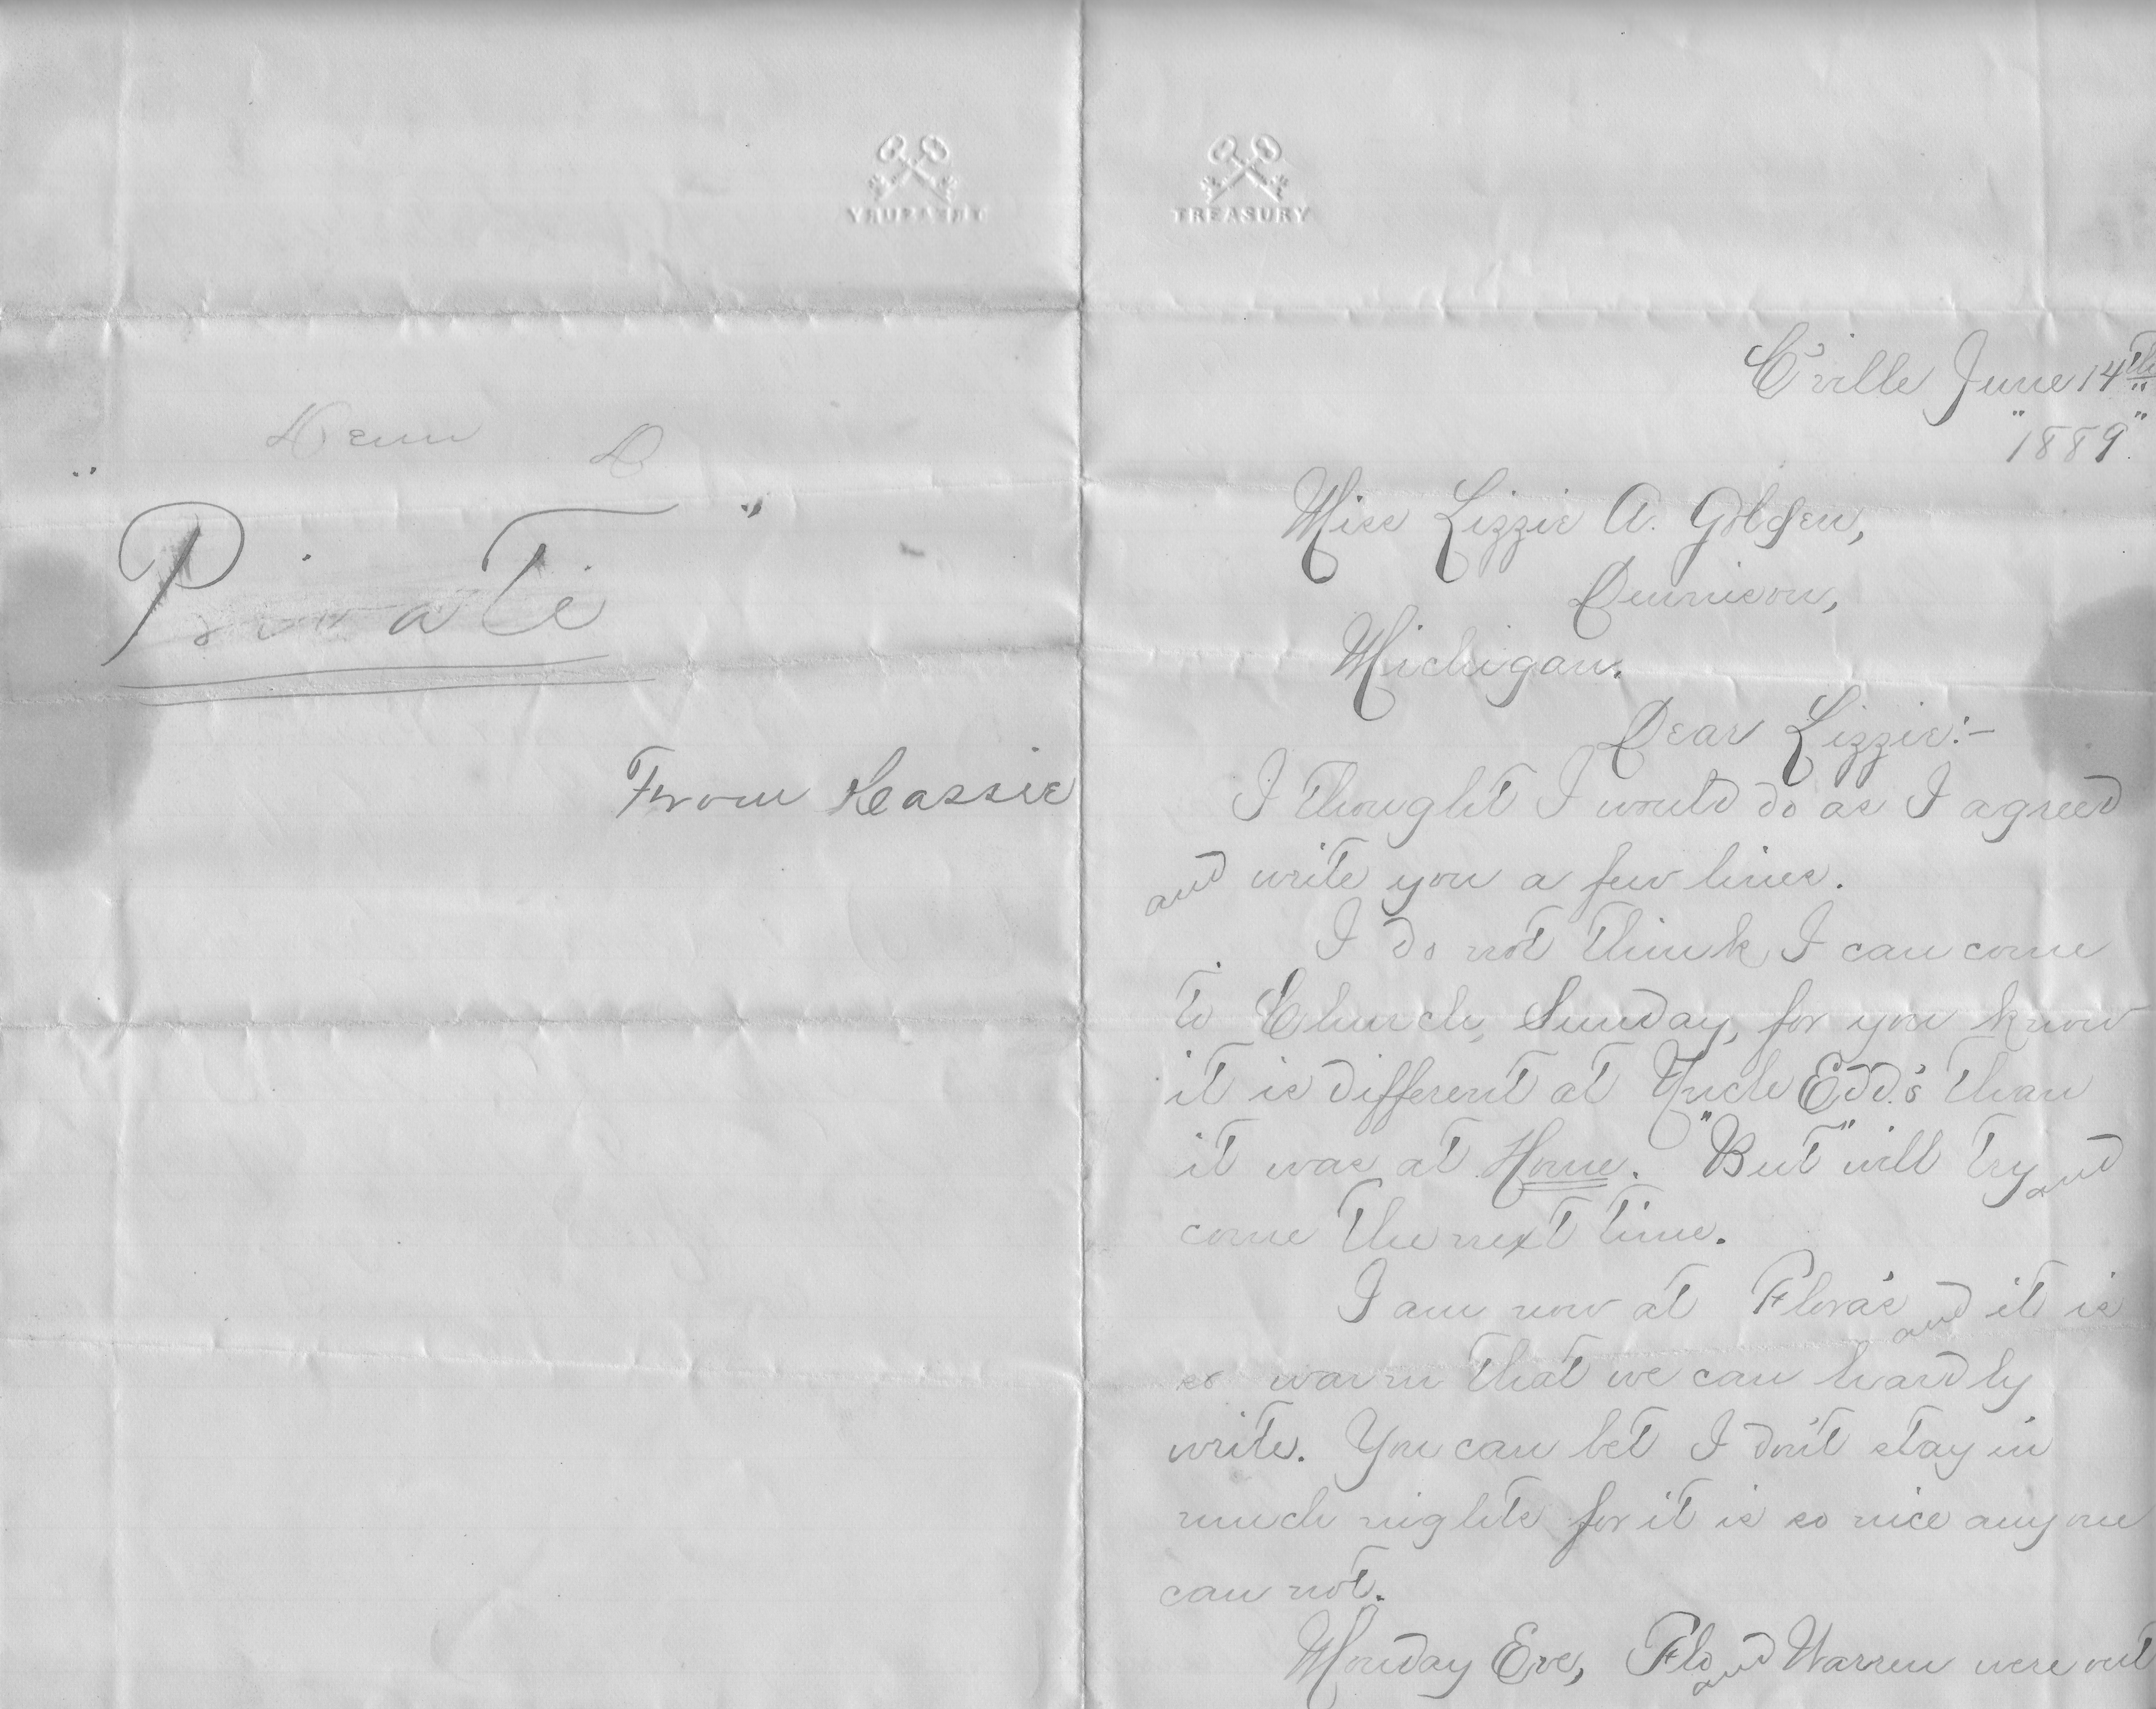 TREASURY
TREASURY
Denn D
" Private "
From Cassie
C'ville June 14th
"1889".
Miss Lizzie A. Golden,
Dennison,
Michigan.
Dear Lizzie:-
I thought I would do as I agreed
and write you a few lines.
I do not think I can come
to Church, Sunday, for you know
it is different at Uncle Edd's than
it was at Home. "But" will try and
come the next time.
I am now at Flora's and it is
so warm that we can hardly
write. You can bet I don't stay in
much nights for it is so nice anyone
can not.
Monday Eve, Flo and Warren were out